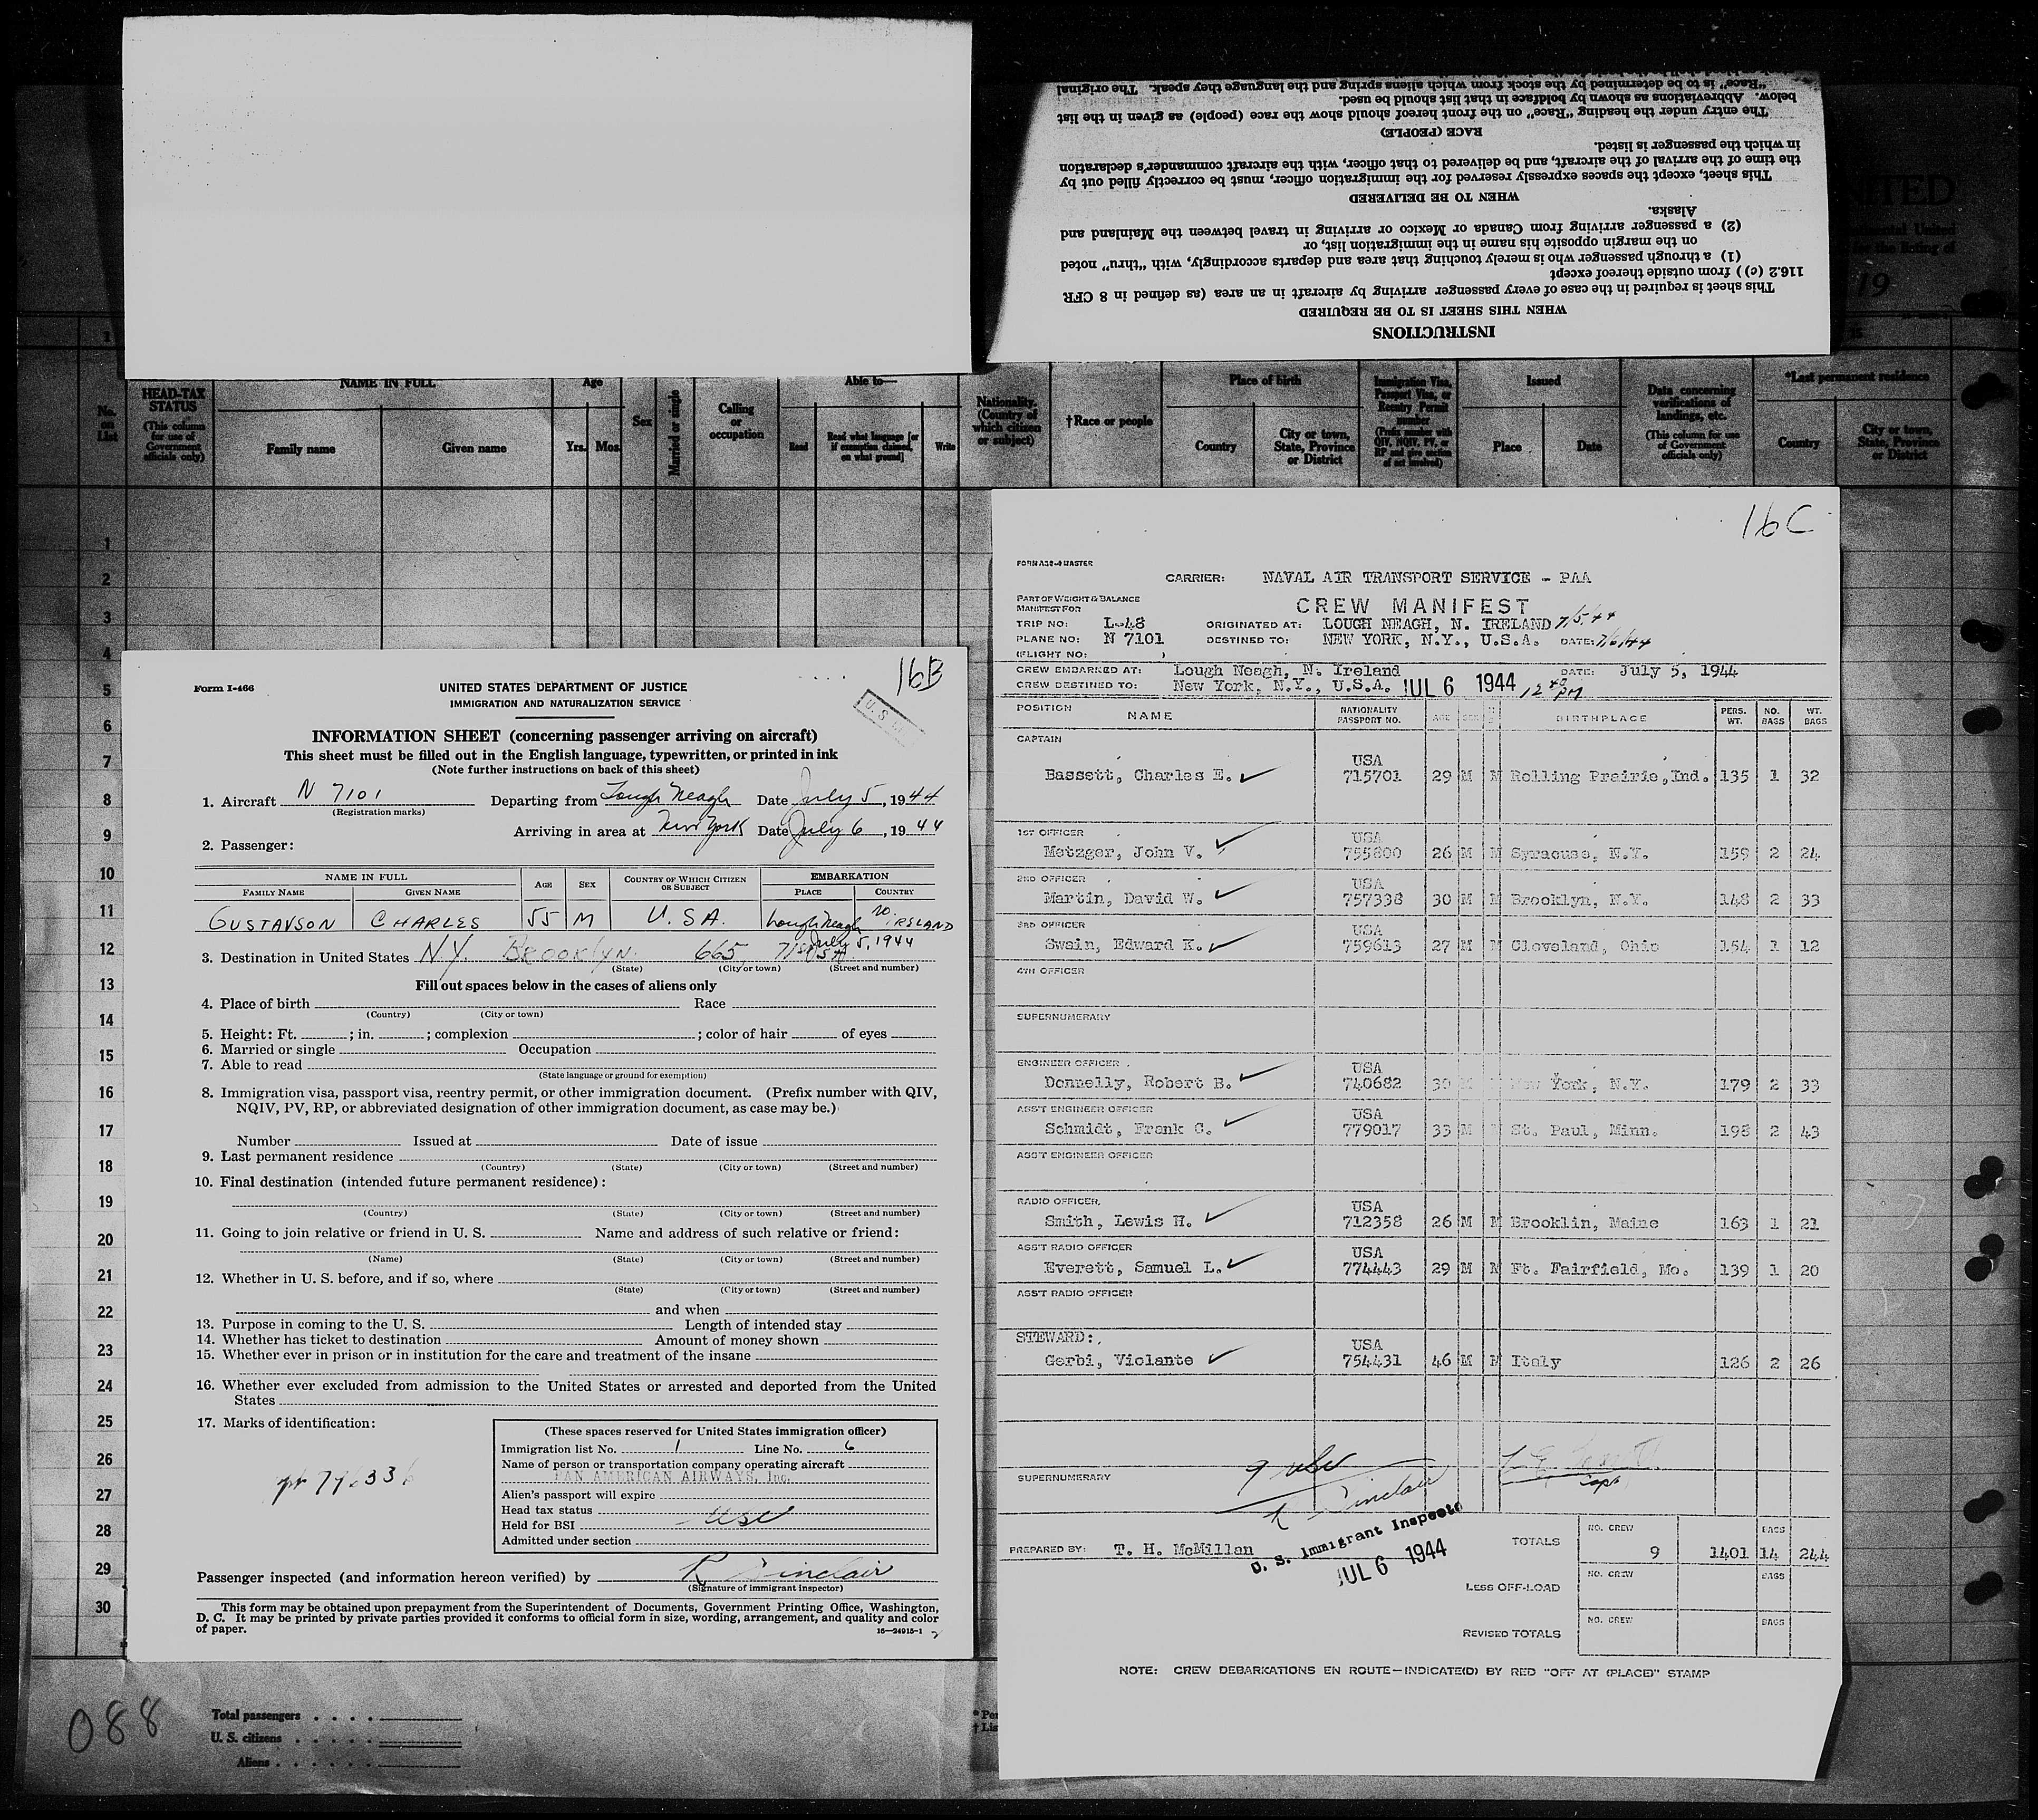 "Race" is to be determined by the stock from which aliens spring and the language they speak. The original
below. Abbreviations as shown by boldface in that list should be used.
The entry under the heading "Race" on the front hereof should show the race (people) as given in the list
RACE (PEOPLE)
in which the passenger is listed.
the time of the arrival of the aircraft, and be delivered to that officer, with the aircraft commander's declaration
This sheet, except the spaces expressly reserved for the immigration officer, must be correctly filled out by
WHEN TO BE DELIVERED
Alaska.
(2) a passenger arriving from Canada or Mexico or arriving in travel between the Mainland and
on the margin opposite his name in the immigration list, or
(1) a through passenger who is merely touching that area and departs accordingly, with "thru" noted
116.2 (c)) from outside thereof except
This sheet is required in the case of every passenger arriving by aircraft in an area (as defined in 8 CFR
WHEN THIS SHEET IS TO BE REQUIRED
INSTRUCTIONS
19
No. on List
HEAD-TAX STATUS
(This column for use of Government officials only)
NAME IN FULL
Family name
Given name
Age
Yrs.
Mos.
Sex
Married or single
Calling or occupation
Able to—
Read
Read what language [or if exemption claimed, on what ground]
Write
Nationality. (Country of which citizen or subject)
†Race or people
Place of birth
Country
City or town, State, Province or District
Immigration Visa, Passport Visa, or Reentry Permit number
(Prefix number with QIV, NQIV, PV, or RP and give section of act involved)
Issued
Place
Date
Data concerning verifications of landings, etc.
(This column for use of Government officials only)
*Last permanent residence
Country
City or town, State, Province or District
1
2
3
4
5
6
7
8
9
10
11
12
13
14
15
16
17
18
19
20
21
22
23
24
25
26
27
28
29
30
16B
Form I-466
UNITED STATES DEPARTMENT OF JUSTICE
IMMIGRATION AND NATURALIZATION SERVICE
INFORMATION SHEET (concerning passenger arriving on aircraft)
This sheet must be filled out in the English language, typewritten, or printed in ink
(Note further instructions on back of this sheet)
1. Aircraft N 7101 Departing from Lough Neagh Date July 5, 1944
(Registration marks)
Arriving in area at New York Date July 6, 1944
2. Passenger:
NAME IN FULL AGE SEX COUNTRY OF WHICH CITIZEN OR SUBJECT EMBARKATION
FAMILY NAME GIVEN NAME PLACE COUNTRY
GUSTAVSON CHARLES 55 M U.S.A. Lough Neagh No. IRELAND
July 5, 1944
3. Destination in United States N.Y. BROOKLYN. 665 71st
(State) (City or town) (Street and number)
Fill out spaces below in the cases of aliens only
4. Place of birth Race
(Country) (City or town)
5. Height: Ft. ; in. ; complexion ; color of hair of eyes
6. Married or single Occupation
7. Able to read
(State language or ground for exemption)
8. Immigration visa, passport visa, reentry permit, or other immigration document. (Prefix number with QIV,
NQIV, PV, RP, or abbreviated designation of other immigration document, as case may be.)
Number Issued at Date of issue
9. Last permanent residence
(Country) (State) (City or town) (Street and number)
10. Final destination (intended future permanent residence):
(Country) (State) (City or town) (Street and number)
11. Going to join relative or friend in U. S. Name and address of such relative or friend:
(Name) (State) (City or town) (Street and number)
12. Whether in U. S. before, and if so, where
(State) (City or town) (Street and number)
and when
13. Purpose in coming to the U. S. Length of intended stay
14. Whether has ticket to destination Amount of money shown
15. Whether ever in prison or in institution for the care and treatment of the insane
16. Whether ever excluded from admission to the United States or arrested and deported from the United
States
17. Marks of identification:
(These spaces reserved for United States immigration officer)
Immigration list No. 1 Line No. 6
Name of person or transportation company operating aircraft
PAN AMERICAN AIRWAYS, Inc.
Alien's passport will expire
Head tax status
Held for BSI USC
Admitted under section
Passenger inspected (and information hereon verified) by R Sinclair
(Signature of immigrant inspector)
This form may be obtained upon prepayment from the Superintendent of Documents, Government Printing Office, Washington,
D. C. It may be printed by private parties provided it conforms to official form in size, wording, arrangement, and quality and color
of paper.
16—24915-1
088
Total passengers
U. S. citizens
Aliens
16C
CARRIER: NAVAL AIR TRANSPORT SERVICE - PAA
PART OF WEIGHT & BALANCE
MANIFEST FOR
CREW MANIFEST
TRIP NO: L-48 ORIGINATED AT: LOUGH NEAGH, N. IRELAND 7/5/44
PLANE NO: N 7101 DESTINED TO: NEW YORK, N.Y., U.S.A. DATE: 7/6/44
(FLIGHT NO: )
CREW EMBARKED AT: Lough Neagh, N. Ireland DATE: July 5, 1944
CREW DESTINED TO: New York, N.Y., U.S.A. JUL 6 1944 12 40 PM
POSITION NAME NATIONALITY PASSPORT NO. AGE SEX BIRTHPLACE PERS. WT. NO. BAGS WT. BAGS
CAPTAIN
USA
Bassett, Charles E. 715701 29 M M Rolling Prairie, Ind. 135 1 32
1ST OFFICER
USA
Metzger, John V. 755800 26 M M Syracuse, N.Y. 159 2 24
2ND OFFICER
USA
Martin, David W. 757338 30 M M Brooklyn, N.Y. 148 2 33
3RD OFFICER
USA
Swain, Edward K. 759613 27 M M Cleveland, Ohio 154 1 12
4TH OFFICER
SUPERNUMERARY
ENGINEER OFFICER
USA
Donnelly, Robert B. 740682 30 M M New York, N.Y. 179 2 33
ASS'T ENGINEER OFFICER
USA
Schmidt, Frank C. 779017 33 M M St. Paul, Minn. 198 2 43
ASS'T ENGINEER OFFICER
RADIO OFFICER
USA
Smith, Lewis H. 712358 26 M M Brooklin, Maine 163 1 21
ASS'T RADIO OFFICER
USA
Everett, Samuel L. 774443 29 M M Ft. Fairfield, Me. 139 1 20
ASS'T RADIO OFFICER
STEWARD:
USA
Gerbi, Violante 754431 46 M M Italy 126 2 26
9 USC
SUPERNUMERARY
R Sinclair
Capt
U. S. Immigrant Inspector
JUL 6 1944
PREPARED BY: T. H. McMillan
TOTALS NO. CREW 9 1401 BAGS 14 244
LESS OFF-LOAD NO. CREW BAGS
REVISED TOTALS NO. CREW BAGS
NOTE: CREW DEBARKATIONS EN ROUTE—INDICATE(D) BY RED "OFF AT (PLACE)" STAMP